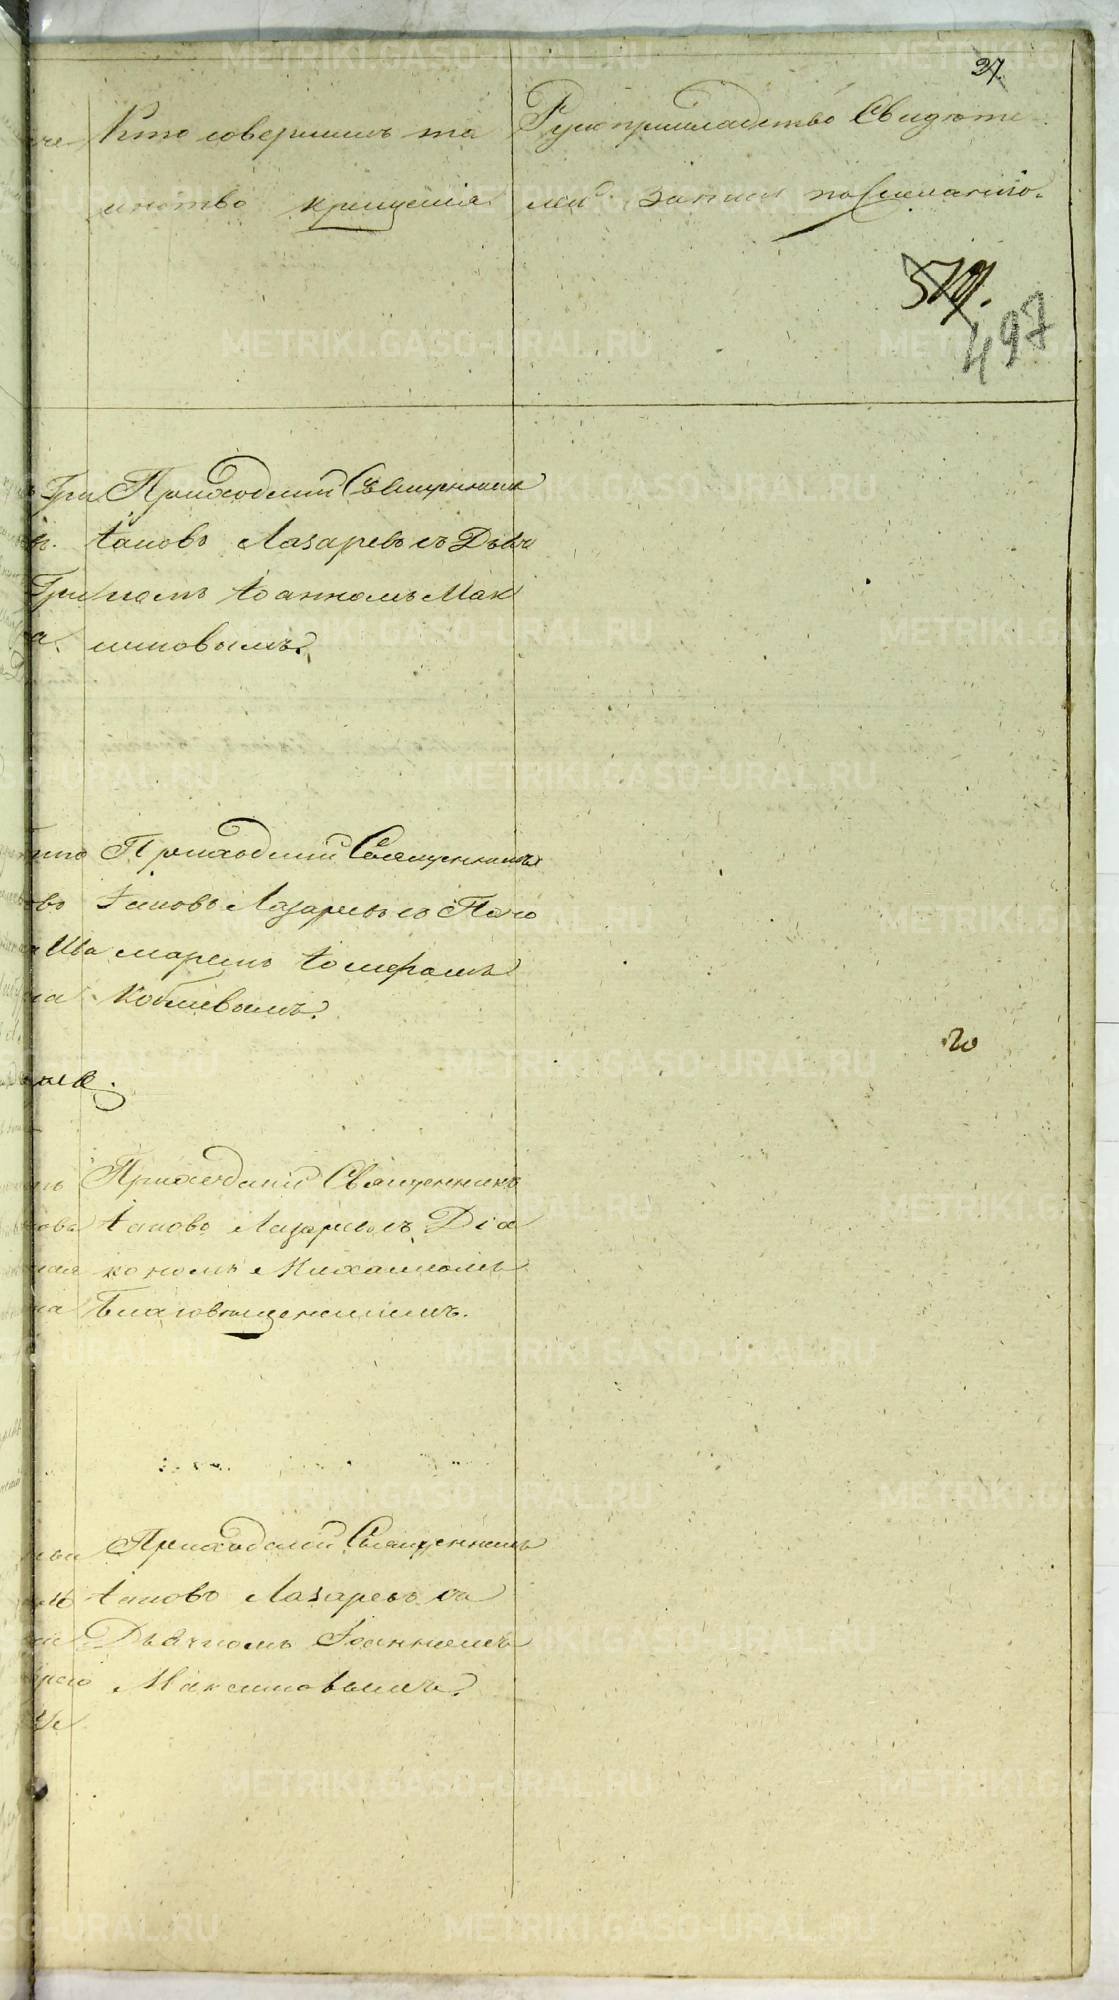 37.
Кто совершилъ та
инство крещенія
Рукоприкладство Свидѣте
лей записи по желанію.
519.
497
Гри Приходскій Священникъ
Іаковъ Лазаревъ съ Дьяч
комъ Іоанномъ Мак
симовымъ.
Приходскій Священникъ
Іаковъ Лазаревъ съ Поно
Ша маремъ Іосифомъ
на Кобшевымъ.
Приходскій Священникъ
кова Іаковъ Лазаревъ съ Діа
кономъ Михаиломъ
на Благовѣщенскимъ.
Приходскій Священникъ
Іаковъ Лазаревъ съ
Дьячкомъ Іоанномъ
Максимовымъ.
METRIKI.GASO-URAL.RU